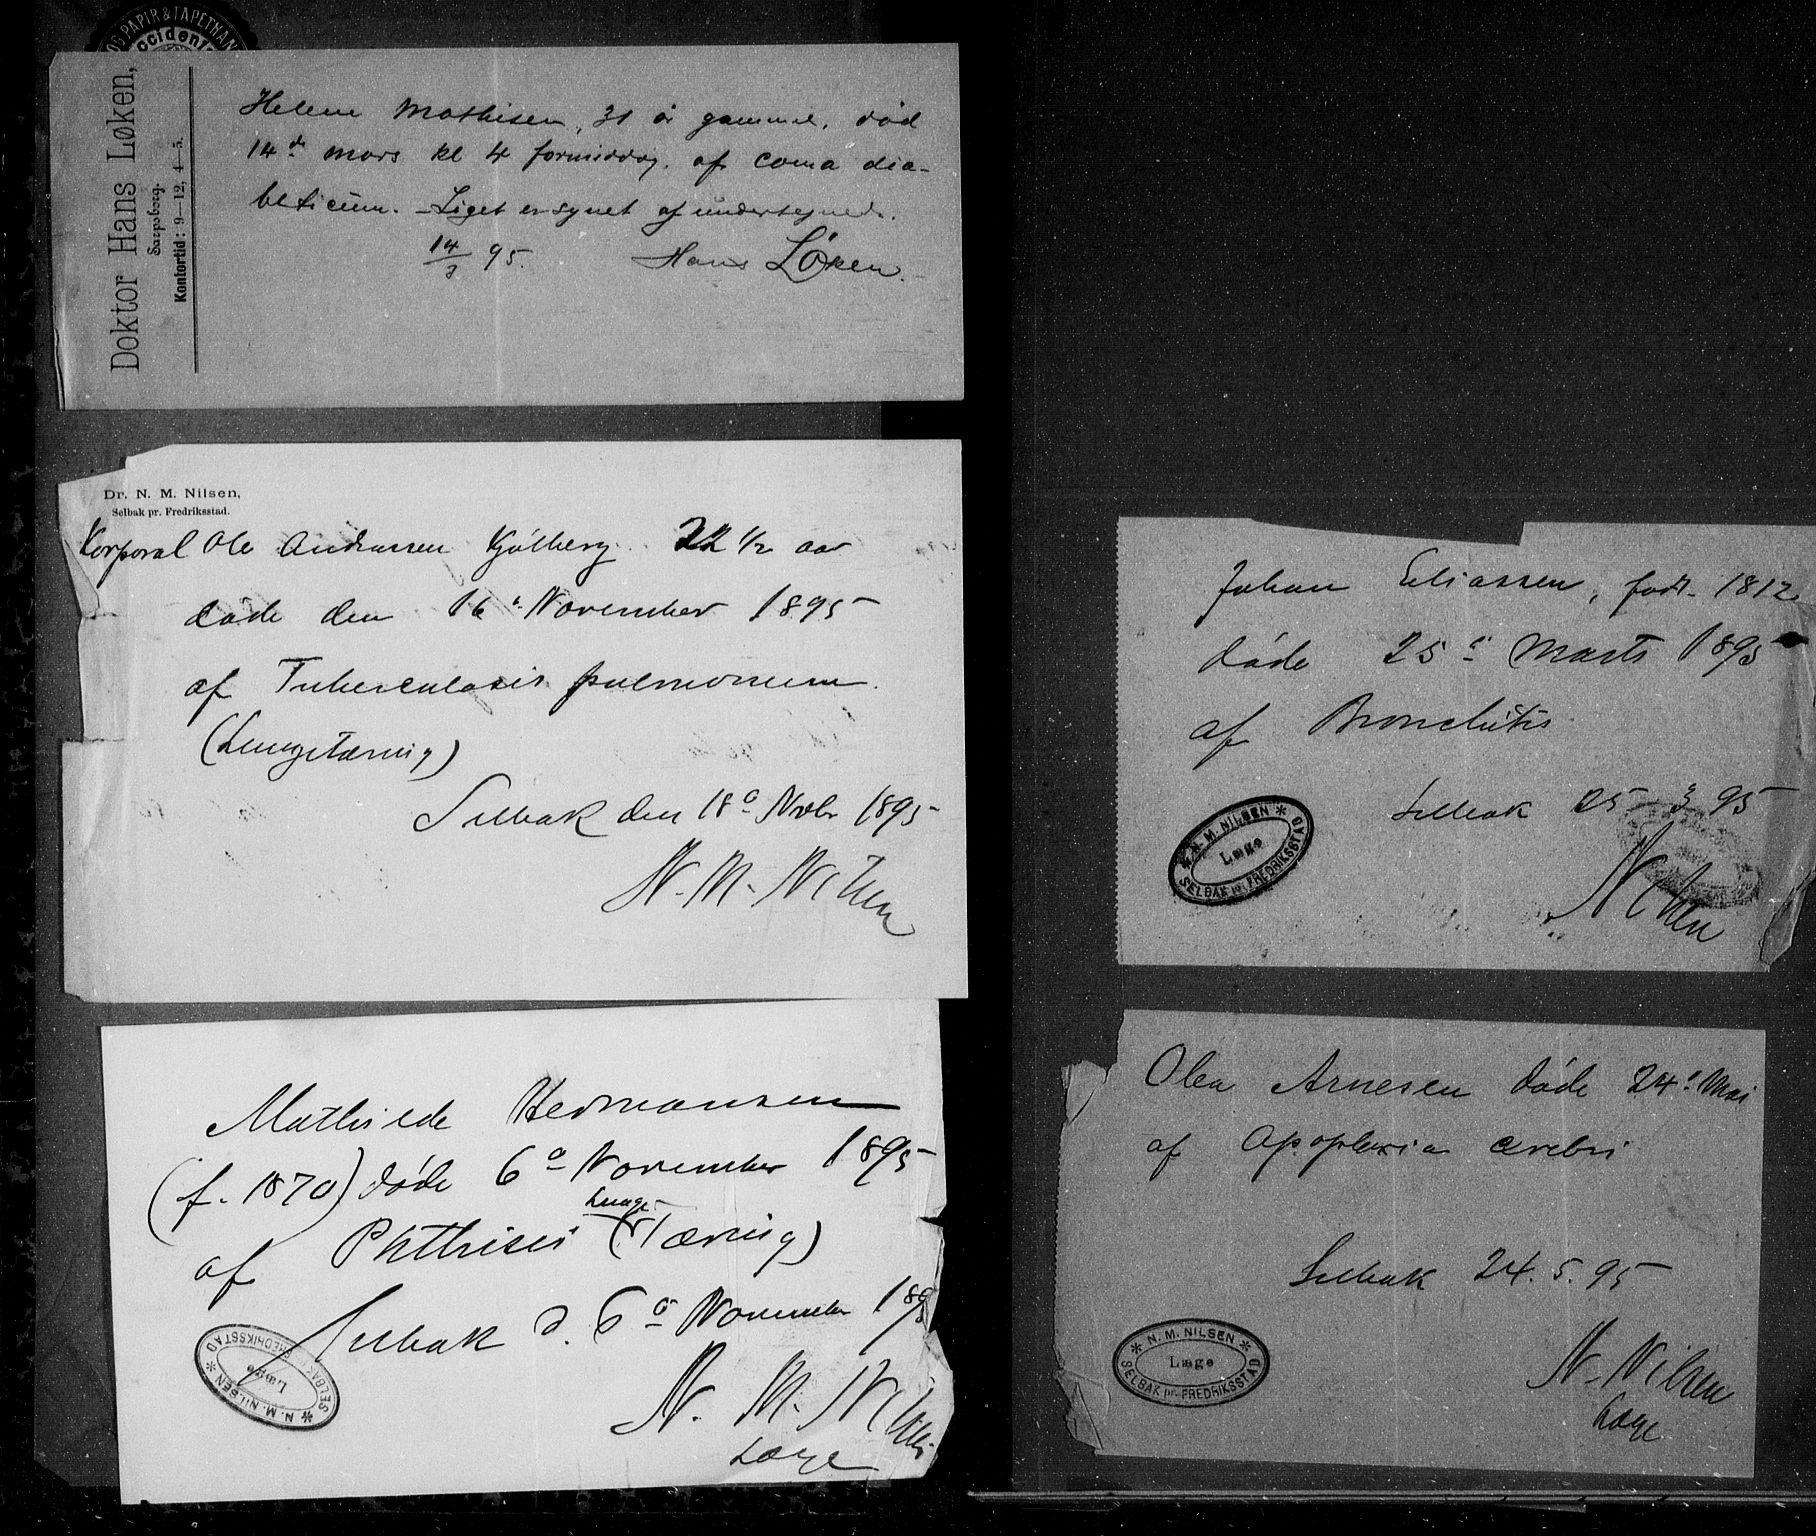 OG PAPIR & TAPETHAN
ccidenta
Doktor Hans Løken,
Sarpsborg.
Kontortid: 9—12, 4—5.
Helene Mathisen, 31 år gammel, død
14de mars kl 4 formiddag. af coma dia-
beticum. - Liget er synet af undertegnede.
14/3 95. Hans Løken.
Dr. N. M. Nilsen,
Selbak pr. Fredriksstad.
Korporal Ole Andreassen Kjølberg 22 1/2 aar
døde den 16de November 1895
af Tuberculosis pulmonum.
(Lungetæring)
Selbak den 18de Novbr 1895
N. M. Nilsen
Mathilde Hermansen
(f. 1870) døde 6de November 1895
af Phthisis (Lunge-Tæring)
Selbak d. 6de November 1895
N. M. NILSEN
Læge
SELBAK pr. FREDRIKSSTAD
N. M. Nilsen
Læge
Johan Eliassen, født 1812
døde 25de Marts 1895
af Bronchitis
Selbak 25-3 95
N. M. NILSEN
Læge
SELBAK pr. FREDRIKSSTAD
Nilsen
Olea Arnesen døde 24de Mai
af Apoplexia cerebri
Selbak 24.5.95
N. M. NILSEN
Læge
SELBAK pr. FREDRIKSSTAD
N. Nilsen
Læge